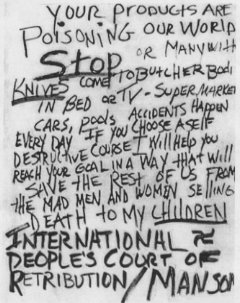 YOUR PRODUCTS ARE
POISONING OUR WORLD
OR MANY WITH
STOP COME TO BUTCHER BODI
KNIVES
IN BED OR TV-SUPERMARKET
CARS, POOLS ACCIDENTS HAPPEN
EVERY DAY IF YOU CHOOSE A SELF
DESTRUCTIVE COURSE I WILL HELP YOU
REACH YOUR GOAL IN A WAY THAT WILL
SAVE THE REST OF US FROM
THE MAD MEN AND WOMEN SELLING
DEATH TO MY CHILDREN
INTERNATIONAL
PEOPLE'S COURT OF
RETRIBUTION/MANSON